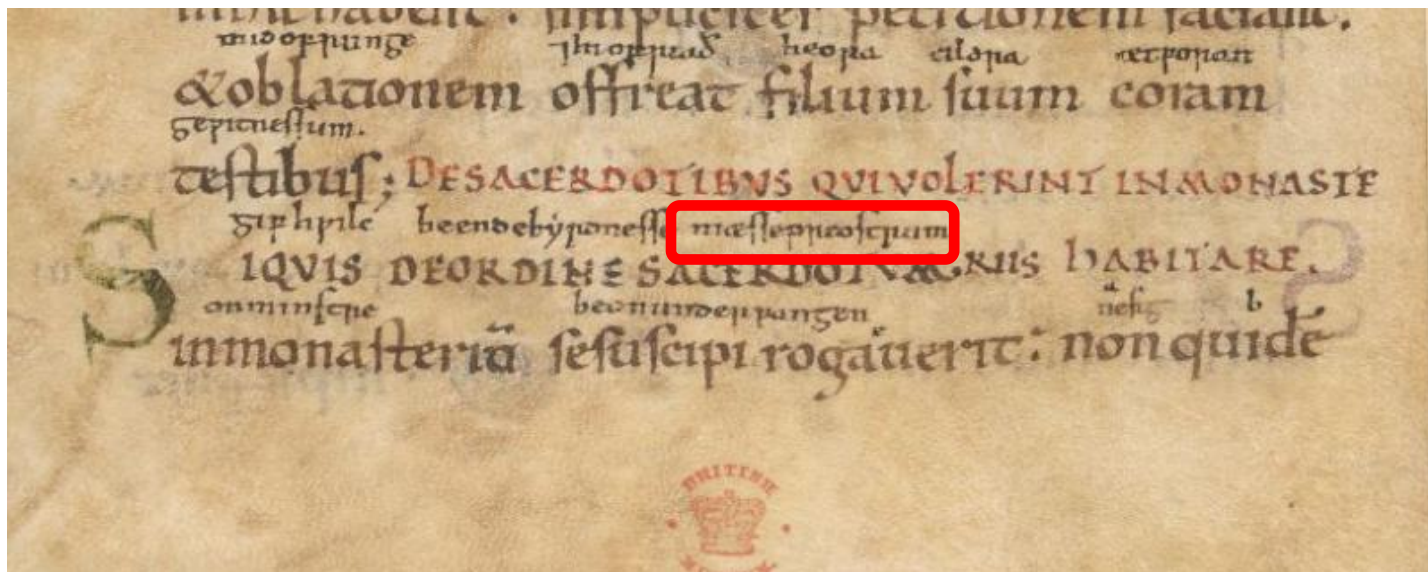 mid offrunge ⁊ hi offriað heora cildra ætforan
&oblationem offreat filium suum coram
gewitnessum.
testibus; DE SACERDOTIBUS QUI VOLERINT IN MONASTE
gif hwilc be endebyrdnesse mæssepreostrum
SIQVIS DE ORDINE SACERDOTVM. RIIS HABITARE.
on minstre beon underfangen
in monasteriū se suscipi rogauerit: non quidē
BRITISH